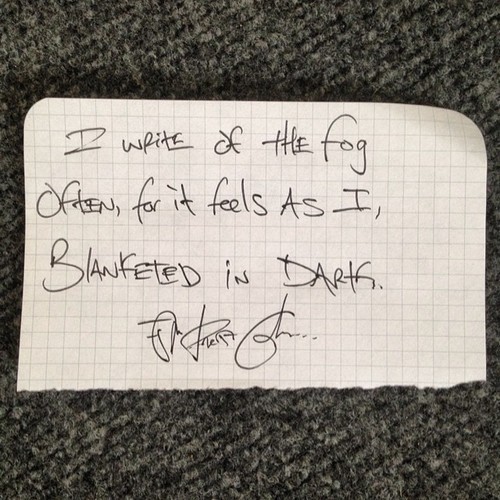 I write of the fog
often, for it feels as I,
Blanketed in Dark.